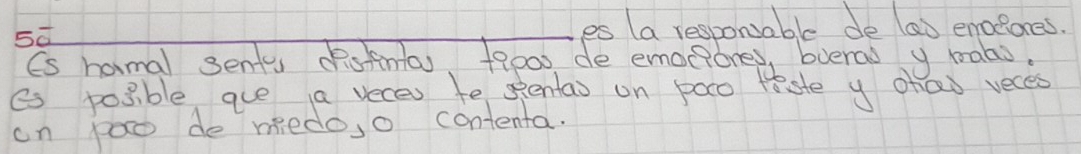 5º ____________________ es la responsable de las emociones.
Es normal sentir distintas tipos de emociones, buenas y malas.
es posible que a veces te sientas un poco triste y otras veces
un poco de miedo, o contenta.